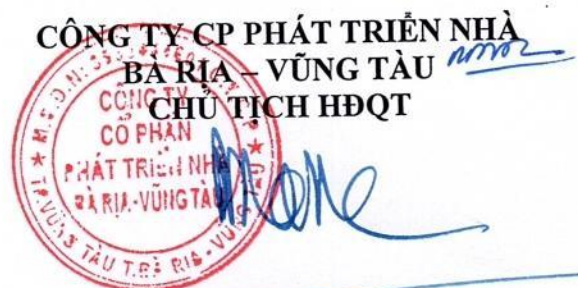 CÔNG TY CP PHÁT TRIỂN NHÀ
BÀ RỊA – VŨNG TÀU
CHỦ TỊCH HĐQT
CÔNG TY
CỔ PHẦN
PHÁT TRIỂN NHÀ
BÀ RỊA-VŨNG TÀU
M.S.D.N:
TP.VŨNG TÀU T.BÀ RỊA - VŨNG